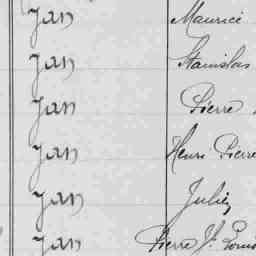 Jan Maurice
Jan Stanislas
Jan Pierre
Jan Henri Pierre
Jan Julien
Jan Pierre Js. Louis